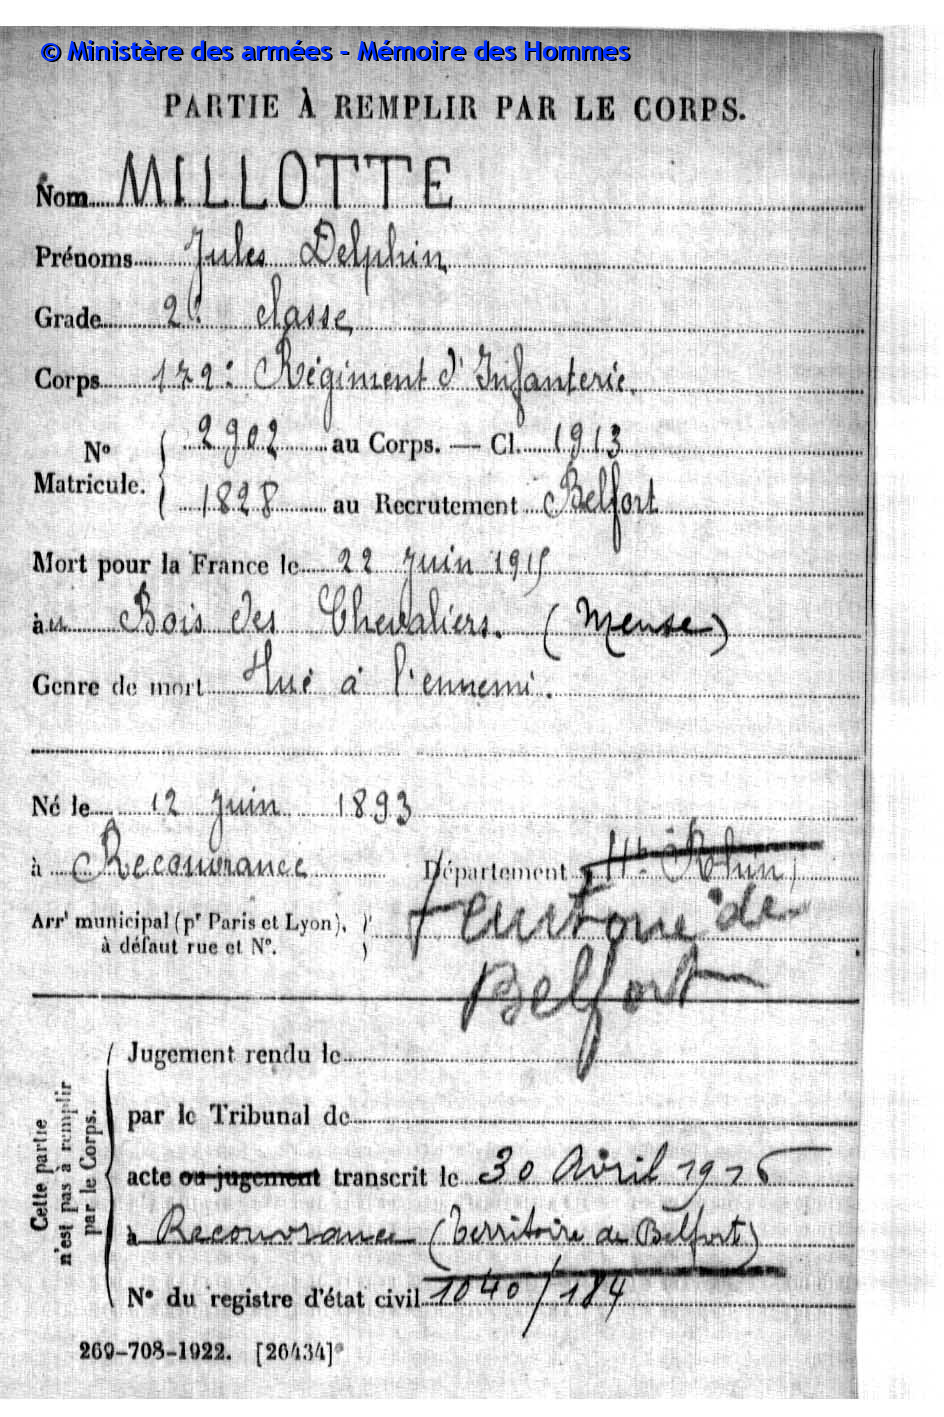 © Ministère des armées - Mémoire des Hommes
PARTIE À REMPLIR PAR LE CORPS.
Nom MILLOTTE
Prénoms Jules Delphin
Grade 2e classe
Corps 172e Régiment d'Infanterie.
N° Matricule. 2902 au Corps. — Cl. 1913
1828 au Recrutement Belfort
Mort pour la France le 22 Juin 1915
à u Bois des Chevaliers. (Meuse)
Genre de mort Tué à l'ennemi.
Né le 12 Juin 1893
à Recouvrance Département Ht-Rhin
Arrt municipal (pr Paris et Lyon), Territoire de
à défaut rue et N°. Belfort
Cette partie
n'est pas à remplir
par le Corps.
Jugement rendu le
par le Tribunal de
acte ou jugement transcrit le 30 Avril 1916
à Recouvrance (Territoire de Belfort)
N° du registre d'état civil 1040/184
269-708-1922. [26434]